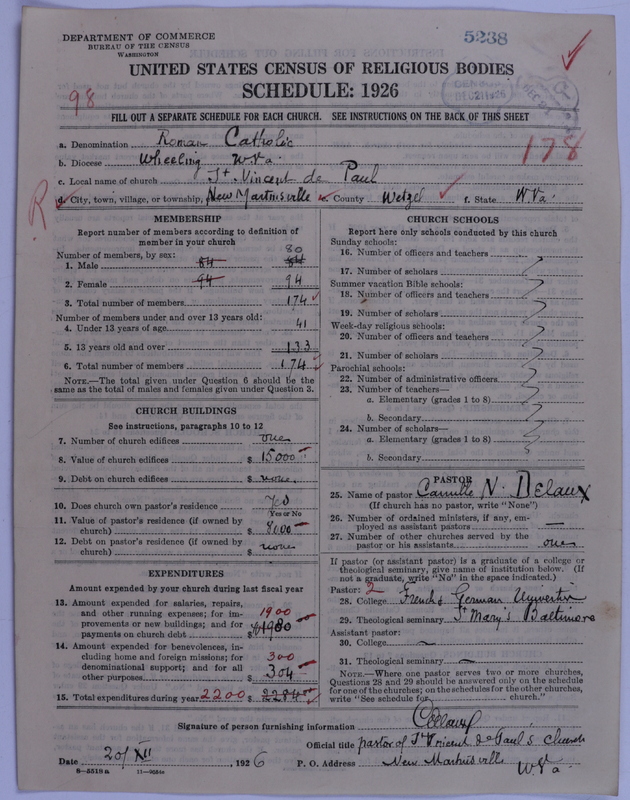 DEPARTMENT OF COMMERCE
BUREAU OF THE CENSUS
WASHINGTON
5238
UNITED STATES CENSUS OF RELIGIOUS BODIES
SCHEDULE: 1926
98
FILL OUT A SEPARATE SCHEDULE FOR EACH CHURCH. SEE INSTRUCTIONS ON THE BACK OF THIS SHEET
178
a. Denomination Roman Catholic
b. Diocese Wheeling W Va.
c. Local name of church St. Vincent de Paul
R
d. City, town, village, or township, New Martinsville e. County Wetzel f. State W. Va.
MEMBERSHIP
Report number of members according to definition of
member in your church
Number of members, by sex: 80
1. Male 84 84
2. Female 94 94
3. Total number of members 174
Number of members under and over 13 years old:
4. Under 13 years of age 41
5. 13 years old and over 133
6. Total number of members 174
NOTE.—The total given under Question 6 should be the
same as the total of males and females given under Question 3.
CHURCH BUILDINGS
See instructions, paragraphs 10 to 12
7. Number of church edifices one
8. Value of church edifices $ 15000
9. Debt on church edifices $ none
10. Does church own pastor's residence Yes
Yes or No
11. Value of pastor's residence (if owned by
church) $ 8000
12. Debt on pastor's residence (if owned by
church) $ none
EXPENDITURES
Amount expended by your church during last fiscal year
13. Amount expended for salaries, repairs,
and other running expenses; for im-
provements or new buildings; and for
payments on church debt $ 1900 1980
14. Amount expended for benevolences, in-
cluding home and foreign missions; for
denominational support; and for all
other purposes $ 300 304
15. Total expenditures during year 2200 $ 2284
CHURCH SCHOOLS
Report here only schools conducted by this church
Sunday schools:
16. Number of officers and teachers
17. Number of scholars
Summer vacation Bible schools:
18. Number of officers and teachers
19. Number of scholars
Week-day religious schools:
20. Number of officers and teachers
21. Number of scholars
Parochial schools:
22. Number of administrative officers
23. Number of teachers—
a. Elementary (grades 1 to 8)
b. Secondary
24. Number of scholars—
a. Elementary (grades 1 to 8)
b. Secondary
PASTOR
25. Name of pastor Camille N. Delaux
(If church has no pastor, write "None")
26. Number of ordained ministers, if any, em-
ployed as assistant pastors —
27. Number of other churches served by the
pastor or his assistants one
If pastor (or assistant pastor) is a graduate of a college or
theological seminary, give name of institution below. (If
not a graduate, write "No" in the space indicated.)
Pastor: 2
28. College French & German
29. Theological seminary St Mary's Baltimore
Assistant pastor:
30. College —
31. Theological seminary —
NOTE.—Where one pastor serves two or more churches,
Questions 28 and 29 should be answered only on the schedule
for one of the churches; on the schedules for the other churches,
write "See schedule for church."
Signature of person furnishing information
Official title pastor of St Vincent de Paul's Church
Date 20/XII, 1926 P. O. Address New Martinsville W. Va.
8—5518a 11—9054a